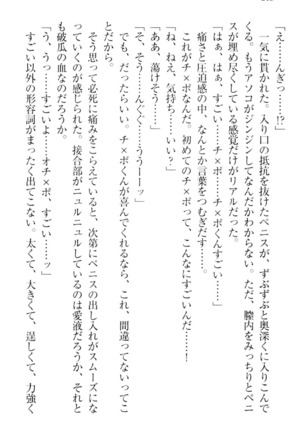 「え……んぎっ…⁉」
　一気に貫かれた。入り口の抵抗を抜けたペニスが、ずぶずぶと奥深くに入りこんで
くる。もうアソコがジンジンしてなんだかわからない。ただ、膣内をみっちりとペニ
スが埋め尽くしている感覚だけがリアルだった。
「はぁ、はぁっ、すごい……チ×ポくんすごい……」
　痛さと圧迫感の中、なんとか言葉をつむぎだす……。
　これがチ×ポなんだ。初めてのチ×ポって、こんなにすごいんだ……！
「ね、ねえ、気持ち……いい？」
「ああ、蕩けそう……」
「そう……んぐぐ……うう——ッ」
　でも、だったらいい。チ×ポくんが喜んでくれるなら、これ、間違ってないってこ
とだから。
　そう思って必死に痛みをこらえていると、次第にペニスの出し入れがスムーズにな
っていくのが感じられた。接合部がニュルニュルしているのは愛液だろうか、それと
も破瓜の血なのだろうか。
「う、うっ……すごいよ……オチ×ポ、すごい……ッ」
　すごい以外の形容詞がまったく出てこない。太くて、大きくて、逞しくて、力強く